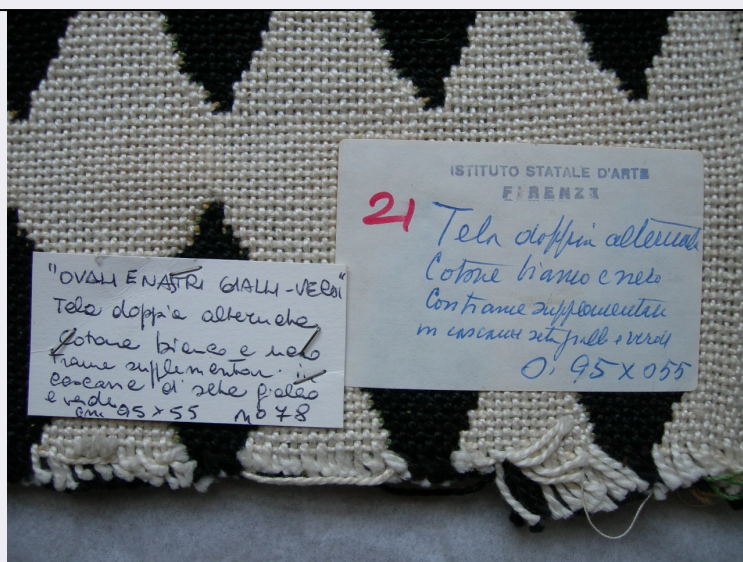 "OVALI E NASTRI GIALLI-VERDI"
Tela doppia alternata
Cotone bianco e nero
trame supplementari in
cascame di seta giallo
e verde
cm. 95 x 55 no 78
ISTITUTO STATALE D'ARTE
FIRENZE
21
Tela doppia alternata
Cotone bianco e nero
Con trame supplementari
in cascame seta gialle e verdi
0,95 x 055